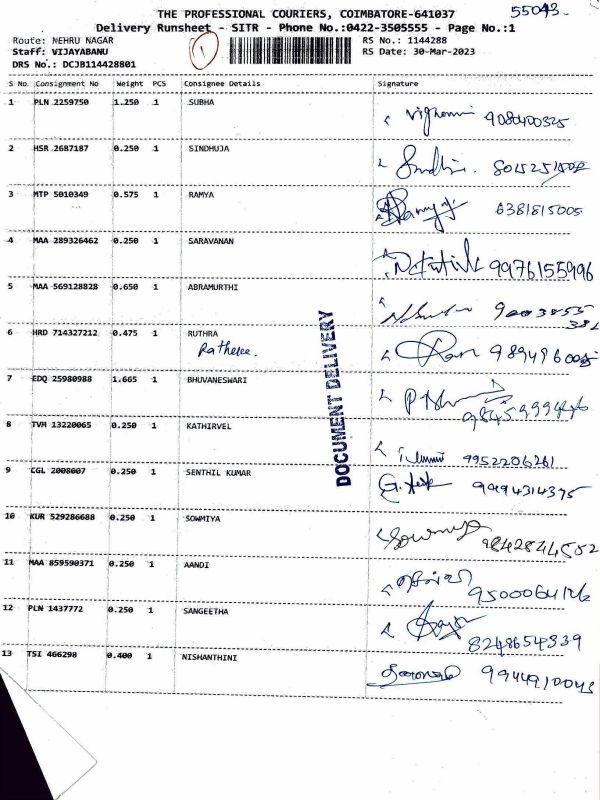 THE PROFESSIONAL COURIERS, COIMBATORE-641037
55043
Delivery Runsheet - SITR - Phone No.:0422-3505555 - Page No.:1
Route: NEHRU NAGAR
1
RS No.: 1144288
Staff: VIJAYABANU
RS Date: 30-Mar-2023
DRS No.: DCJB114428801
S No. Consignment No Weight PCS Consignee Details Signature
1 PLN 2259750 1.250 1 SUBHA
2 HSR 2687187 0.250 1 SINDHUJA
3 MTP 5010349 0.575 1 RAMYA 6381815005
4 MAA 289326462 0.250 1 SARAVANAN 9976155996
5 MAA 569128828 0.650 1 ABRAMURTHI
6 HRD 714327212 0.475 1 RUTHRA
DOCUMENT DELIVERY
7 EDQ 25980988 1.665 1 BHUVANESWARI
8 TVM 13220065 0.250 1 KATHIRVEL 9952206261
9 CGL 2008007 0.250 1 SENTHIL KUMAR
10 KUR 529286688 0.250 1 SOWMIYA Sowmiya 9842844552
11 MAA 859590371 0.250 1 AANDI
12 PLN 1437772 0.250 1 SANGEETHA 8248654339
13 TSI 466298 0.400 1 NISHANTHINI